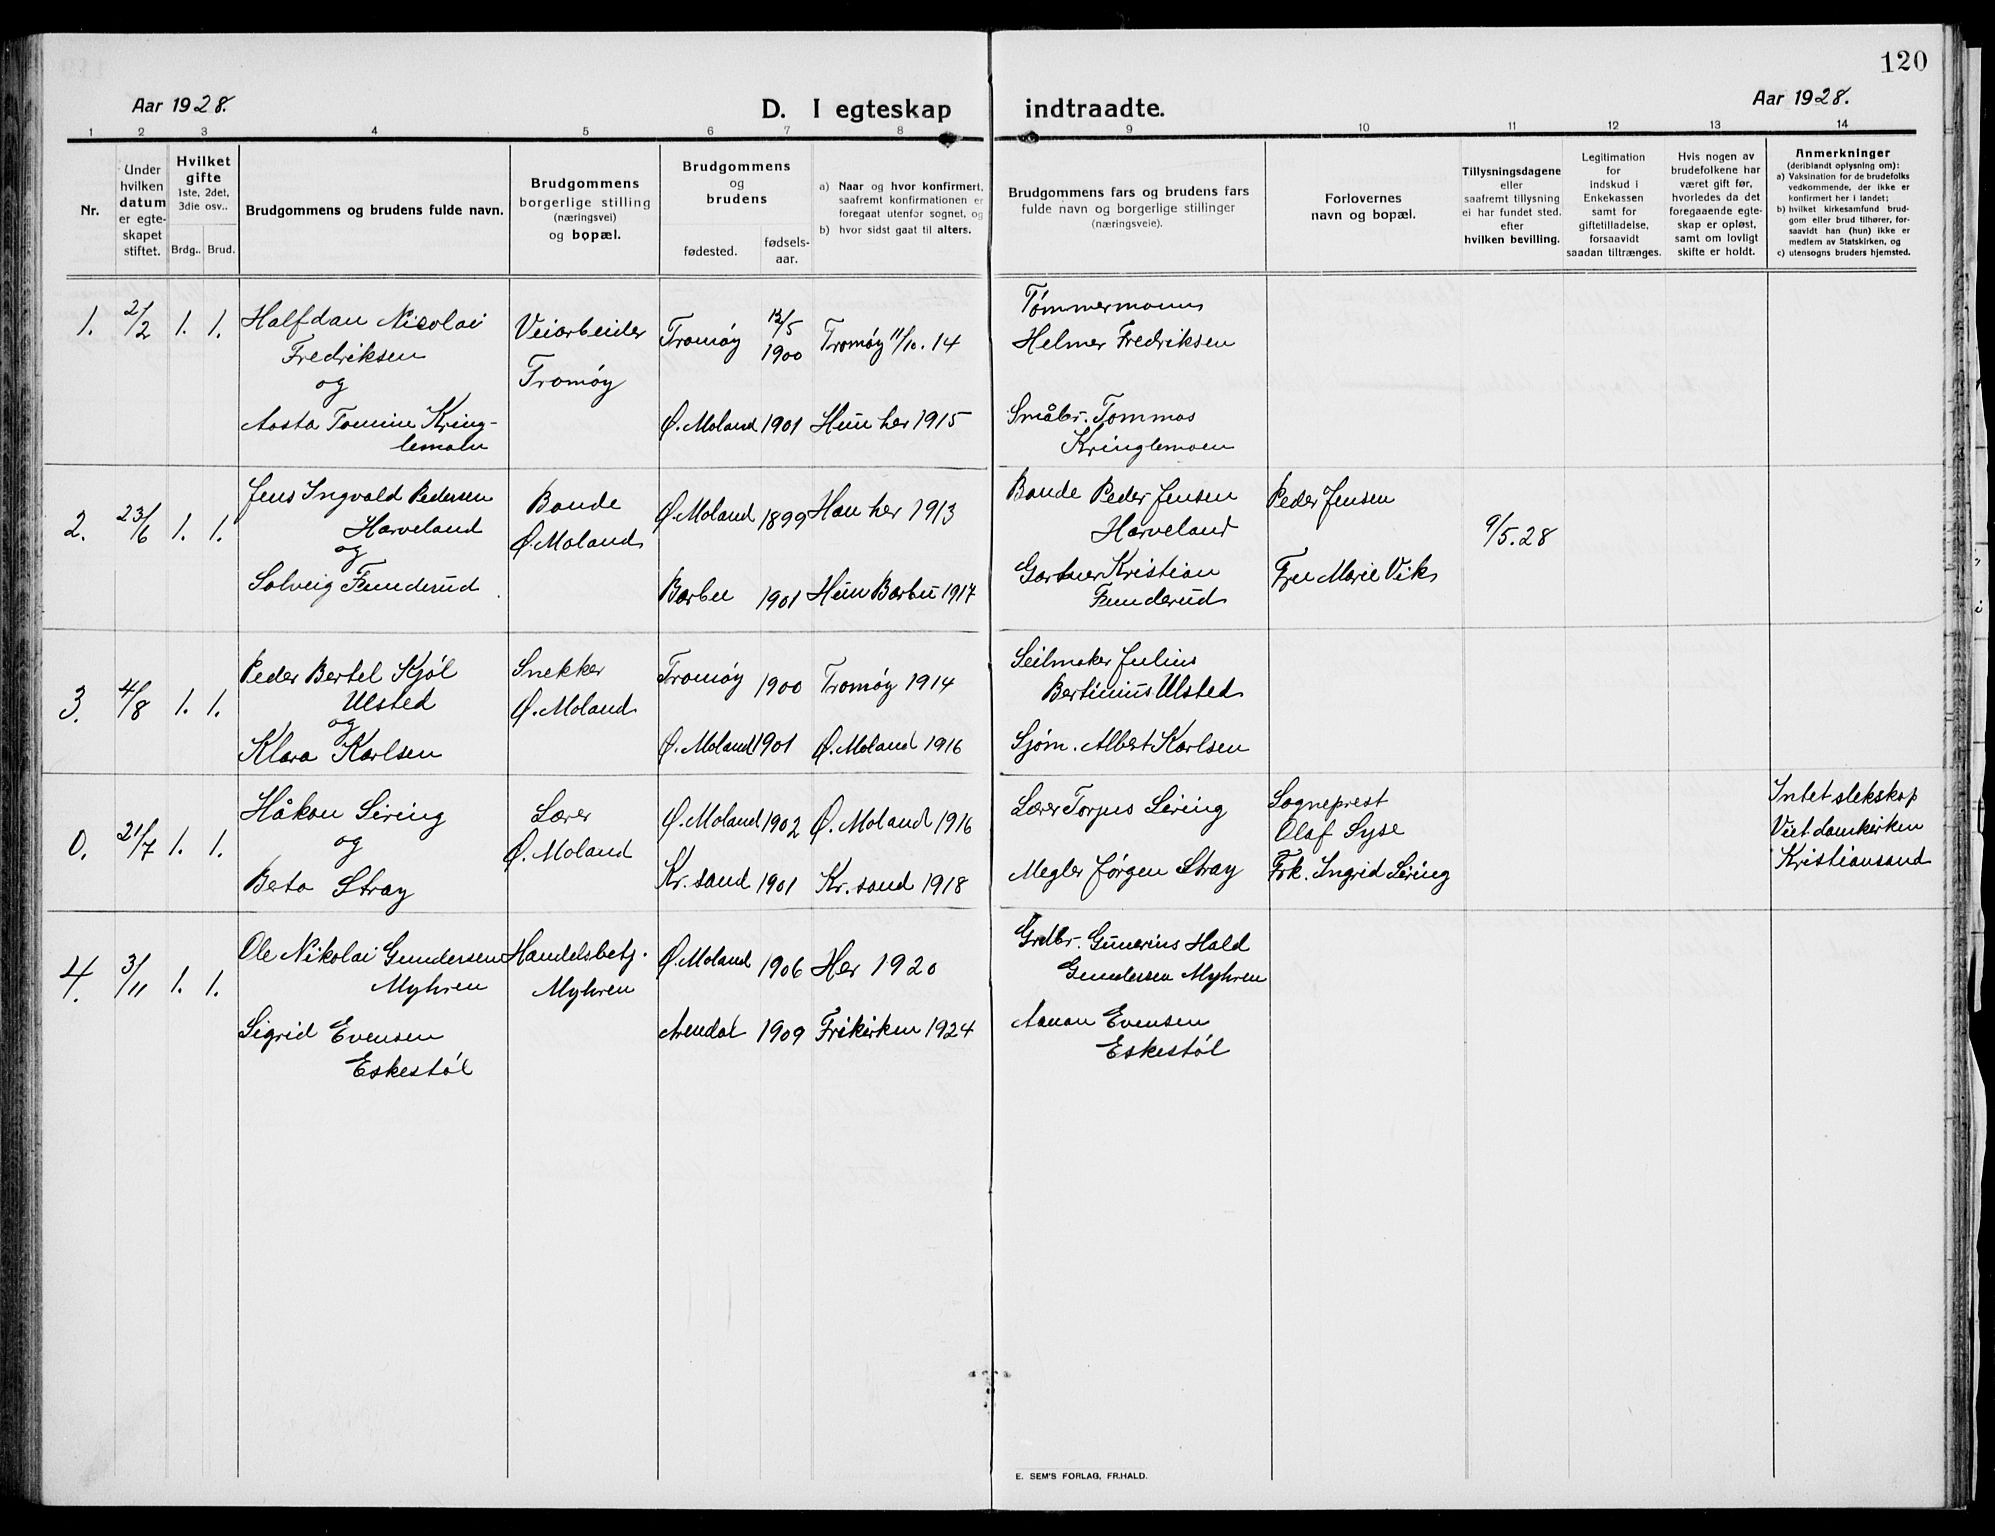 120
Aar 1928.
D. I egteskap indtraadte.
Aar 1928.
1 2 3 4 5 6 7 8 9 10 11 12 13 14
Nr.
Under
hvilken
datum
er egte-
skapet
stiftet.
Hvilket
gifte
1ste, 2det,
3die osv..
Brdg.. Brud.
Brudgommens og brudens fulde navn.
Brudgommens
borgerlige stilling
(næringsvei)
og bopæl.
Brudgommens
og
brudens
fødested.
fødsels-
aar.
a) Naar og hvor konfirmert,
saafremt konfirmationen er
foregaat utenfor sognet, og
b) hvor sidst gaat til alters.
Brudgommens fars og brudens fars
fulde navn og borgerlige stillinger
(næringsveie).
Forlovernes
navn og bopæl.
Tillysningsdagene
eller
saafremt tillysning
ei har fundet sted.
efter
hvilken bevilling.
Legitimation
for
indskud i
Enkekassen
samt for
giftetilladelse,
forsaavidt
saadan tiltrænges.
Hvis nogen av
brudefolkene har
været gift før,
hvorledes da det
foregaaende egte-
skap er opløst,
samt om lovligt
skifte er holdt.
Anmerkninger
(deriblandt oplysning om):
a) Vaksination for de brudefolks
vedkommende, der ikke er
konfirmert her i landet;
b) hvilket kirkesamfund brud-
gom eller brud tilhører, for-
saavidt han (hun) ikke er
medlem av Statskirken, og
c) utensogns bruders hjemsted.
1. 2/2 1. 1.
Halfdan Nicolai
Fredriksen
og
Aasta Tomine Kring-
lemoln
Veiarbeider
Tromøy
Tromøy 12/5 1900 Tromøy 11/10. 14
Ø. Moland 1901 Hun her 1915
Tømmermann
Helmer Fredriksen
Småbr. Tommas
Kringlemoen
2. 23/6 1. 1.
Jens Ingvald Pedersen
Harveland
og
Solveig Funderud
Bonde
Ø. Moland
Ø. Moland 1899 Han her 1913
Barbu 1901 Hun Barbu 1917
Bonde Peder Jensen
Harveland
Gartner Kristian
Funderud
Peder Jensen
Fru Marie Vik
9/5. 28
3. 4/8 1. 1.
Peder Bertel Kjøl
Ulsted
og
Klara Karlsen
Snekker
Ø. Moland
Tromøy 1900 Tromøy 1914
Ø. Moland 1901 Ø. Moland 1916
Seilmaker Julius
Bertinius Ulsted
Sjøm. Albert Karlsen
0. 21/7 1. 1.
Håkon Siring
og
Beta Stray
Lærer
Ø. Moland
Ø. Moland 1902 Ø. Moland 1916
Kr. sand 1901 Kr. sand 1918
Lærer Torjus Siring
Megler Jørgen Stray
Sogneprest
Olaf Syse
Frk. Ingrid Siring
Intet slekskap
Viet domkirken
Kristiansand
4. 3/11 1. 1.
Ole Nikolai Gundersen
Myhren
Sigrid Evensen
Eskestøl
Handelsbetj.
Myhren
Ø. Moland 1906 Her 1920
Arendal 1909 Frikirken 1924
Grdbr. Gunerius Hald
Gundersen Myhren
Aanon Evensen
Eskestøl
E. SEM'S FORLAG, FR.HALD.